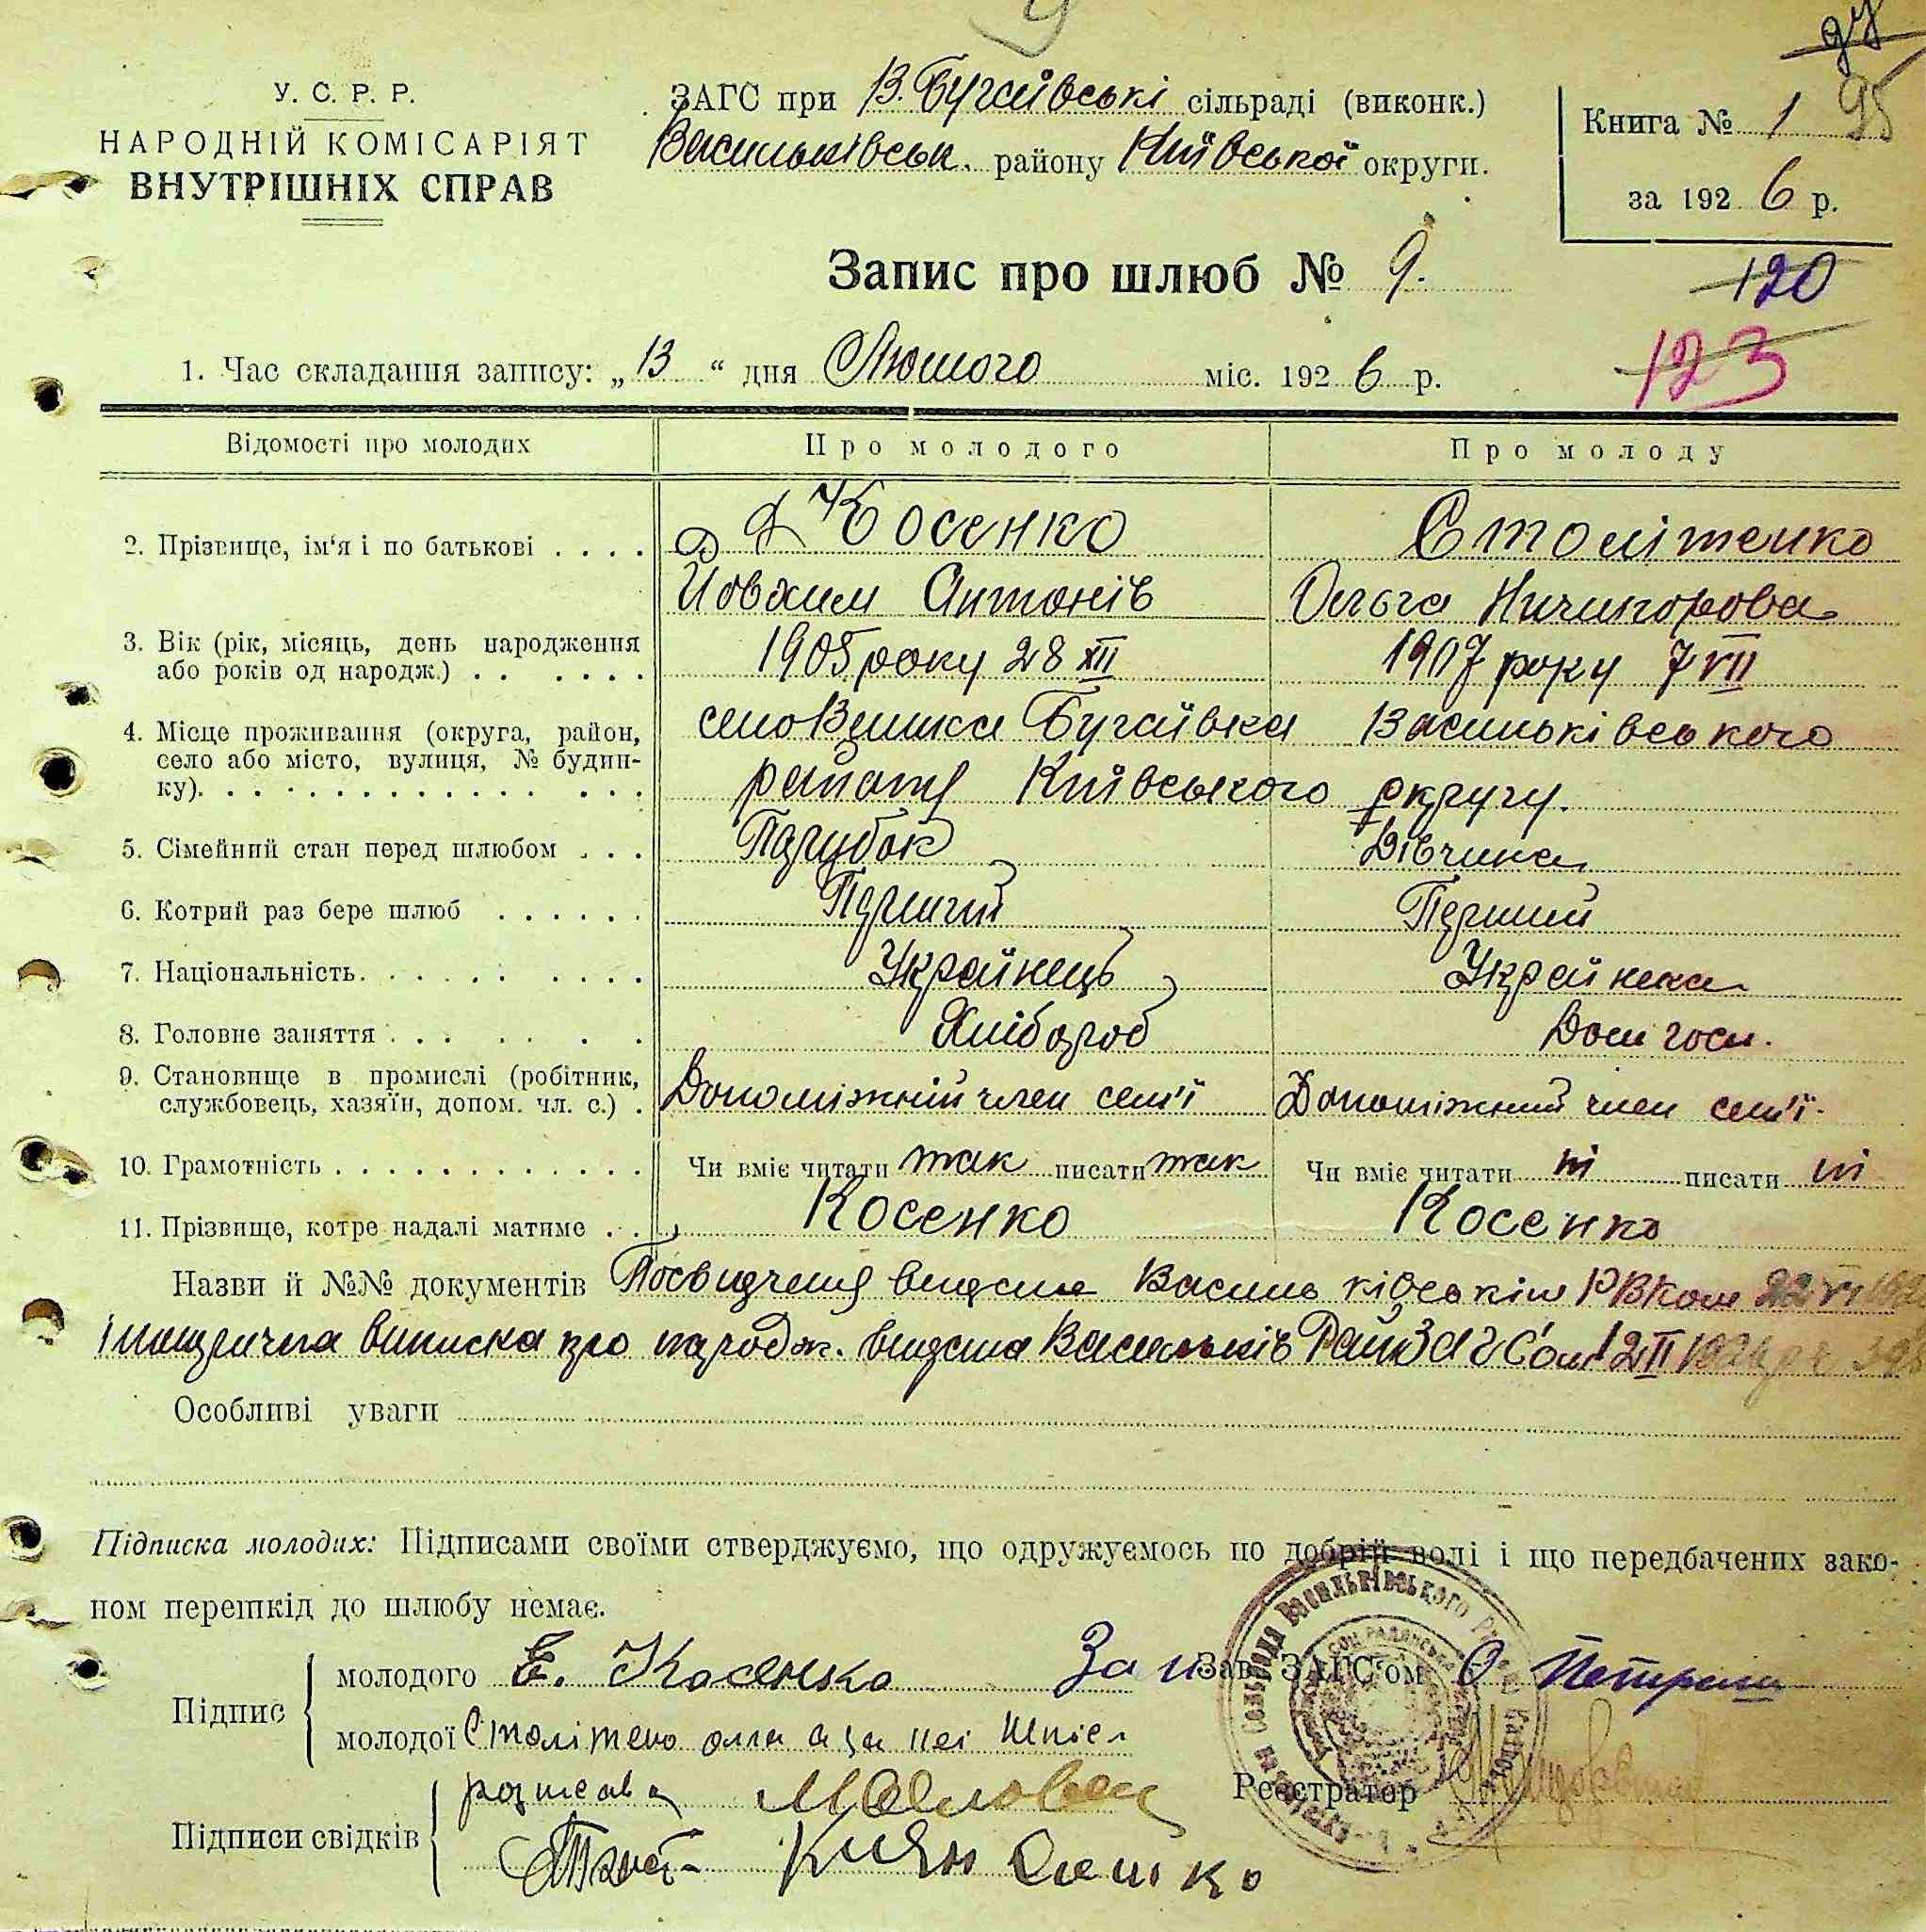 У. С. Р. Р.
НАРОДНІЙ КОМІСАРІЯТ
ВНУТРІШНІХ СПРАВ
ЗАГС при В. Бугаївські сільраді (виконк.)
Васильківськ. району Київської округи.
Книга № 1 95
за 1926 р.
Запис про шлюб № 9.
120
123
1. Час складання запису: „13“ дня Лютого міс. 1926 р.
Відомості про молодих Про молодого Про молоду
2. Прізвище, ім‘я і по батькові . . . . Косенко Столітенко
Йовхим Антонів Ольга Ничипорова
3. Вік (рік, місяць, день народження
або років од народж.) . . . . . . 1905 року 28 XII 1907 року 7 VII
4. Місце проживання (округа, район,
село або місто, вулиця, № будин-
ку). село Велика Бугаївка Васильківського
району Київського округу.
5. Сімейний стан перед шлюбом . . . Парубок Дівчина
6. Котрий раз бере шлюб . . . . . . Перший Перший
7. Національність. . . . . . . . . Українець Українка
8. Головне заняття . . . . . . . Хлібороб Дом госп.
9. Становище в промислі (робітник,
службовець, хазяїн, допом. чл. с.) . Допоміжний член сем'ї Допоміжний член сем'ї.
10. Грамотність . . . . . . . . . . . . Чи вміє читати так писати так Чи вміє читати ні писати ні
11. Прізвище, котре надалі матиме . . Косенко Косенко
Назви й №№ документів Посвідчення видане Васильківським РВКом 22 VI
виписка про народж. видана Васильків РайЗАГС'ом 12 II
Особливі уваги
Підписка молодих: Підписами своїми стверджуємо, що одружуємось по добрій волі і що передбачених зако-
ном перешкід до шлюбу немає.
Підпис
молодого Е. Косенко
Зав. ЗАГС'ом
молодої Столітено олга а за неї
Реєстратор
Підписи свідків